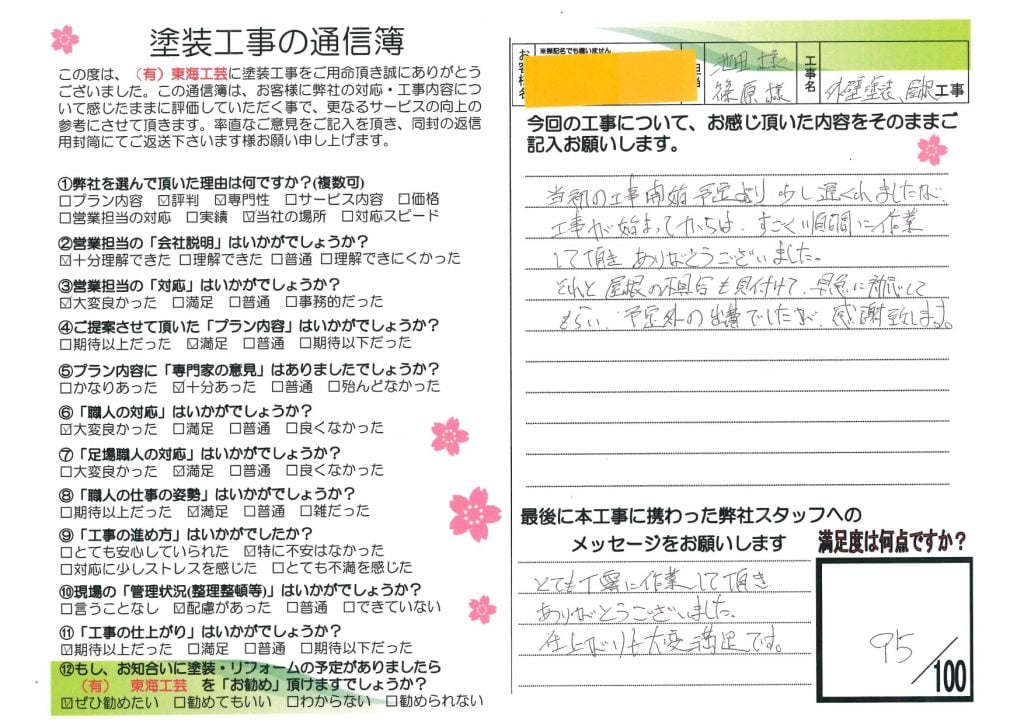 塗装工事の通信簿
この度は、(有)東海工芸に塗装工事をご用命頂き誠にありがとう
ございました。この通信簿は、お客様に弊社の対応・工事内容につ
いて感じたままに評価していただく事で、更なるサービスの向上の
参考にさせて頂きます。率直なご意見をご記入を頂き、同封の返信
用封筒にてご返送下さいます様お願い申し上げます。
①弊社を選んで頂いた理由は何ですか?(複数可)
□プラン内容 ☑評判 ☑専門性 □サービス内容 □価格
□営業担当の対応 □実績 ☑当社の場所 □対応スピード
②営業担当の「会社説明」はいかがでしょうか?
☑十分理解できた □理解できた □普通 □理解できにくかった
③営業担当の「対応」はいかがでしょうか?
☑大変良かった □満足 □普通 □事務的だった
④ご提案させて頂いた「プラン内容」はいかがでしょうか?
□期待以上だった ☑満足 □普通 □期待以下だった
⑤プラン内容に「専門家の意見」はありましたでしょうか?
□かなりあった ☑十分あった □普通 □殆んどなかった
⑥「職人の対応」はいかがでしょうか?
☑大変良かった □満足 □普通 □良くなかった
⑦「足場職人の対応」はいかがでしょうか?
□大変良かった ☑満足 □普通 □良くなかった
⑧「職人の仕事の姿勢」はいかがでしょうか?
□期待以上だった ☑満足 □普通 □雑だった
⑨「工事の進め方」はいかがでしたか?
□とても安心していられた ☑特に不安はなかった
□対応に少しストレスを感じた □とても不満を感じた
⑩現場の「管理状況(整理整頓等)」はいかがでしょうか?
□言うことなし ☑配慮があった □普通 □できていない
⑪「工事の仕上がり」はいかがでしょうか?
☑期待以上だった □満足 □普通 □期待以下だった
⑫もし、お知合いに塗装・リフォームの予定がありましたら
(有) 東海工芸 を「お勧め」頂けますでしょうか?
☑ぜひ勧めたい □勧めてもいい □わからない □勧められない
お客様名 ※無記名でも構いません 担当 池田様 篠原様 工事名 外壁塗装、屋根工事
今回の工事について、お感じ頂いた内容をそのままご
記入お願いします。
当初の工事開始予定より少し遅くれましたが、
工事が始まってからは、すごく順調に作業
して頂きありがとうございました。
それと屋根の不具合も見付けて、早急に対応して
もらい、予定外の出費でしたが、感謝致します。
最後に本工事に携わった弊社スタッフへの
メッセージをお願いします
とても丁寧に作業して頂き
ありがとうございました。
仕上がりも大変満足です。
満足度は何点ですか?
95/100